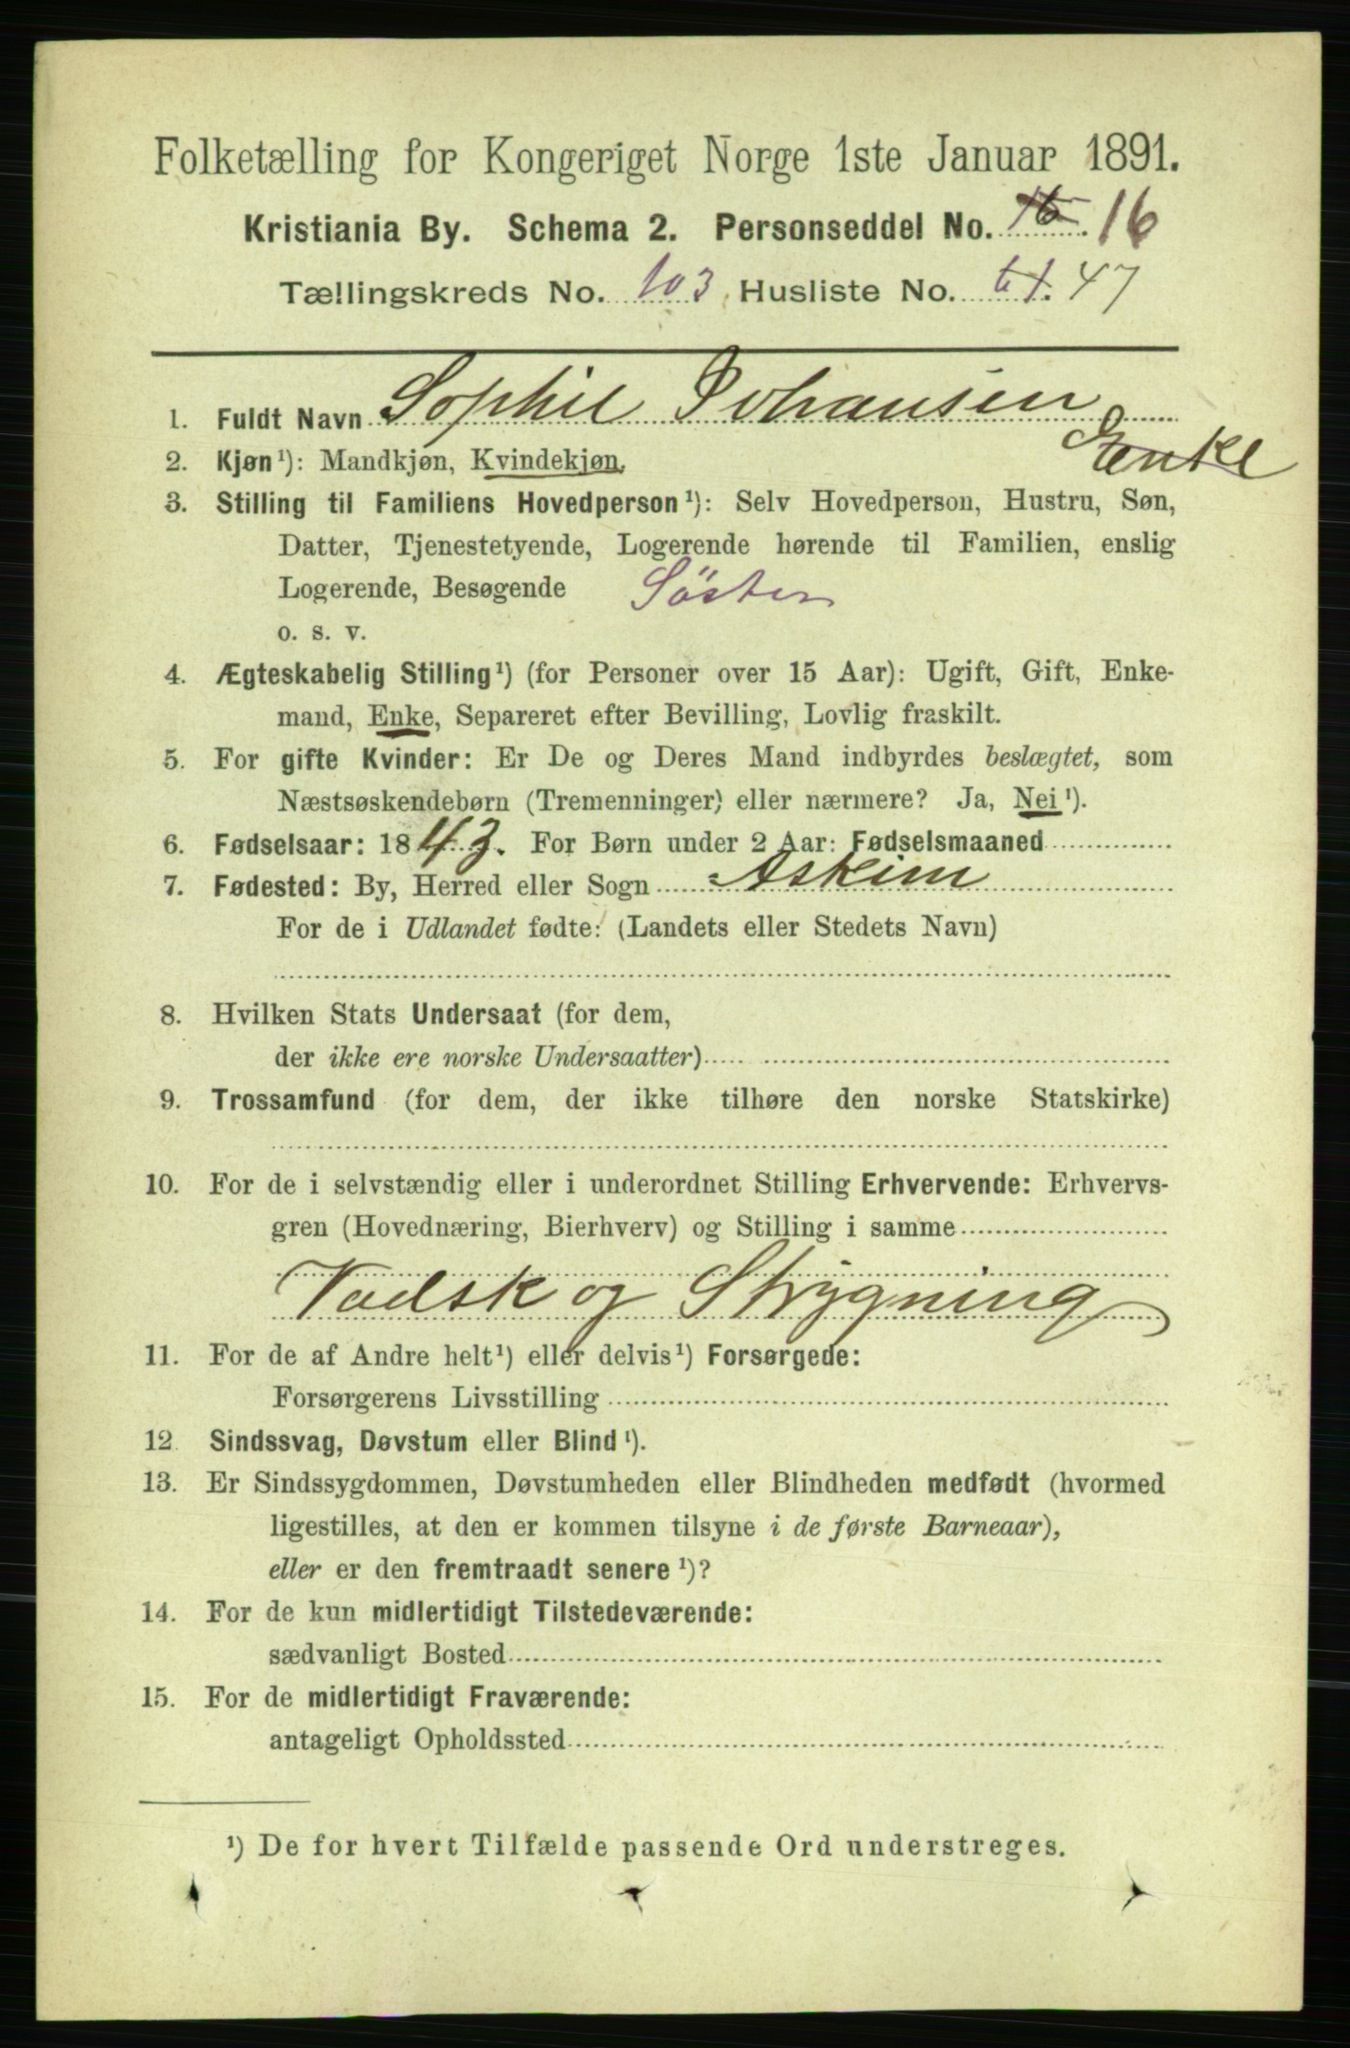 Folketælling for Kongeriget Norge 1ste Januar 1891.
Kristiania By. Schema 2. Personseddel No. 16 16
Tællingskreds No. 103 Husliste No. 61. 47
1. Fuldt Navn Sophie Johansen
Enke
2. Kjøn¹): Mandkjøn, Kvindekjøn.
3. Stilling til Familiens Hovedperson¹): Selv Hovedperson, Hustru, Søn,
Datter, Tjenestetyende, Logerende hørende til Familien, enslig
Logerende, Besøgende Söster
o. s. v.
4. Ægteskabelig Stilling¹) (for Personer over 15 Aar): Ugift, Gift, Enke-
mand, Enke, Separeret efter Bevilling, Lovlig fraskilt.
5. For gifte Kvinder: Er De og Deres Mand indbyrdes beslægtet, som
Næstsøskendebørn (Tremenninger) eller nærmere? Ja, Nei¹).
6. Fødselsaar: 1843. For Børn under 2 Aar: Fødselsmaaned
7. Fødested: By, Herred eller Sogn Askim
For de i Udlandet fødte: (Landets eller Stedets Navn)
8. Hvilken Stats Undersaat (for dem,
der ikke ere norske Undersaatter)
9. Trossamfund (for dem, der ikke tilhøre den norske Statskirke)
10. For de i selvstændig eller i underordnet Stilling Erhvervende: Erhvervs-
gren (Hovednæring, Bierhverv) og Stilling i samme
Vadsk og Strygning
11. For de af Andre helt¹) eller delvis¹) Forsørgede:
Forsørgerens Livsstilling
12. Sindssvag, Døvstum eller Blind¹).
13. Er Sindssygdommen, Døvstumheden eller Blindheden medfødt (hvormed
ligestilles, at den er kommen tilsyne i de første Barneaar),
eller er den fremtraadt senere¹)?
14. For de kun midlertidigt Tilstedeværende:
sædvanligt Bosted
15. For de midlertidigt Fraværende:
antageligt Opholdssted
¹) De for hvert Tilfælde passende Ord understreges.